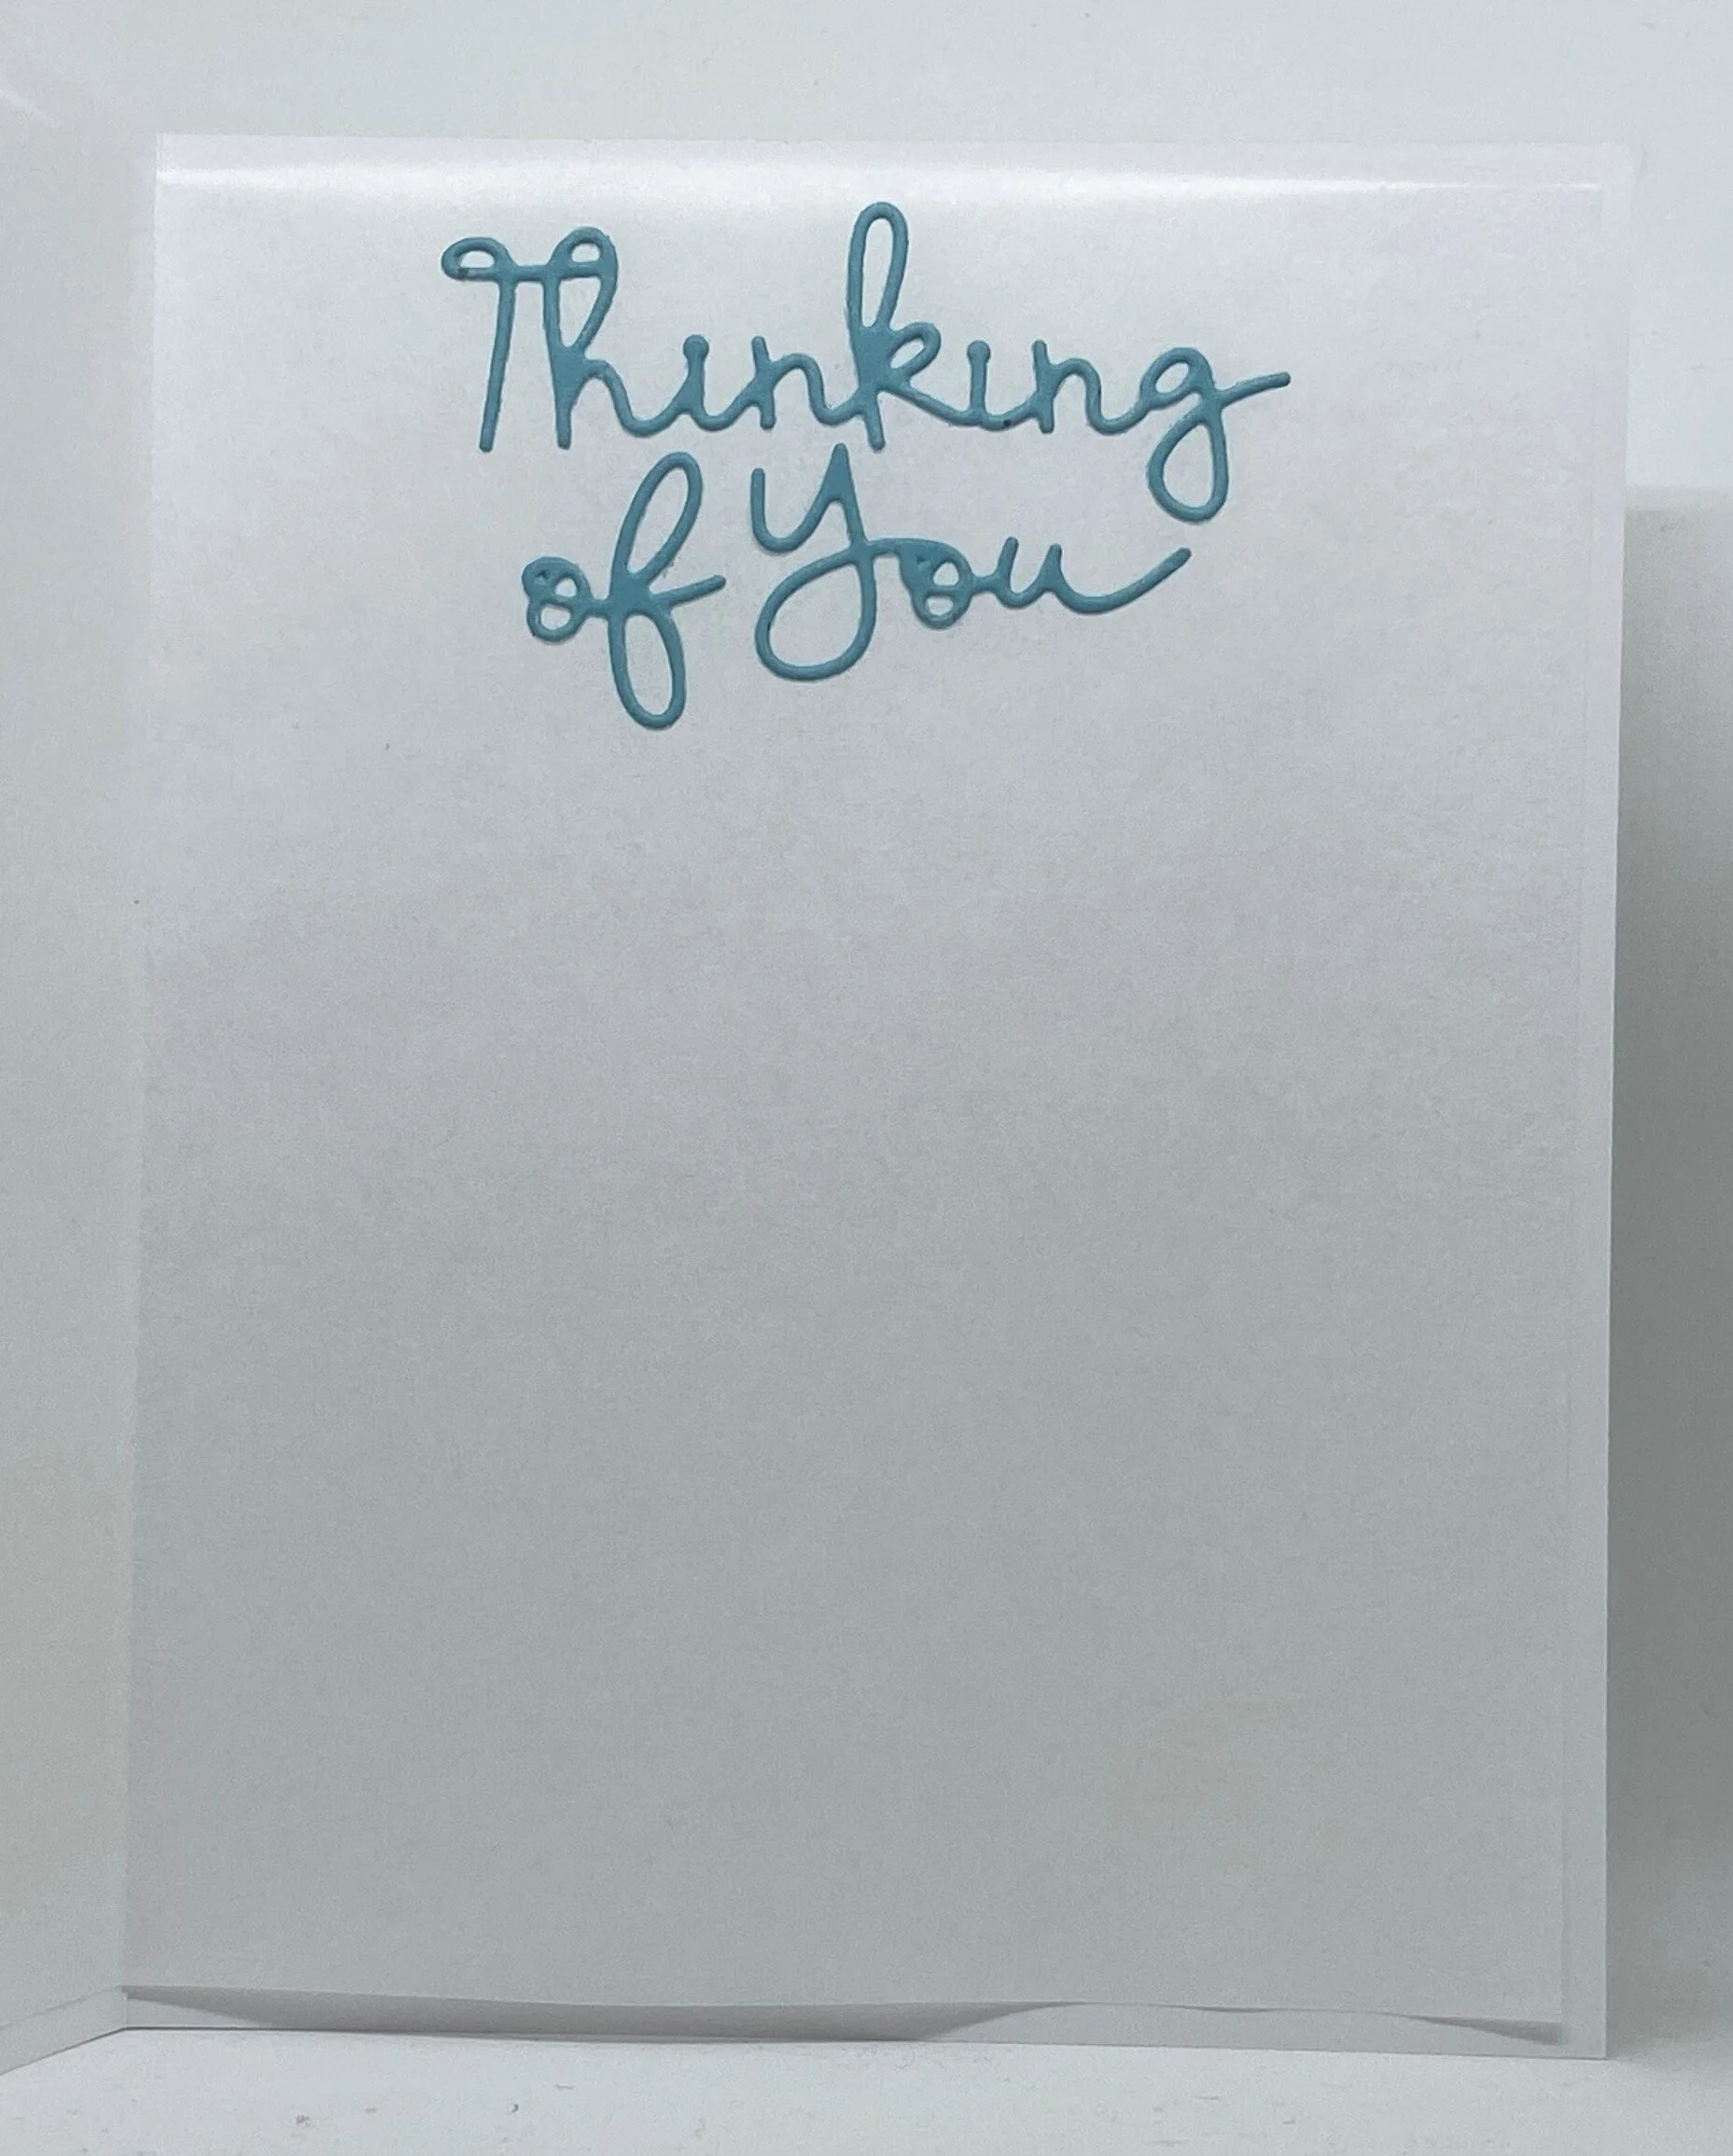 Thinking
of you